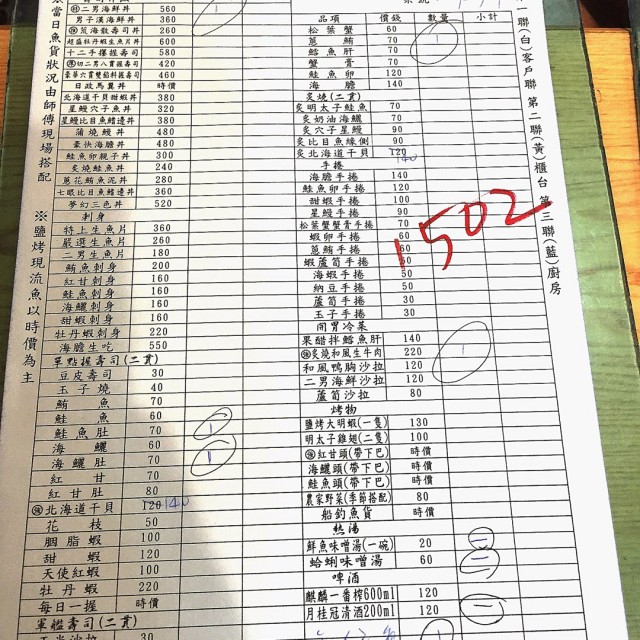 依當日魚貨狀況由師傅現場搭配
※鹽烤現流魚以時價為主
二男海鮮丼 560 1
男子漢海鮮丼 360
蔥海散壽司丼 260
超盛牡丹蝦生魚片丼 600
十二手握握壽司 580
切二男八貫握壽司 420
豪華六貫雙船料握壽司 460
日政馬糞丼 時價
北海道干貝甜蝦丼 380
星鰻穴子魚丼 320
星鰻比目魚鰭邊丼 380
蒲燒鰻丼 480
豪快海膽丼 480
鮭魚卵親子丼 300
炙燒鮭魚丼 240
蔥花鮪魚泥丼 280
七眼比目魚鰭邊丼 360
夢幻三色丼 520
刺身
特上生魚片 360
嚴選生魚片 260
二男生魚片 180
鮪魚刺身 200
紅甘刺身 160
鮭魚刺身 160
海鱺刺身 160
甜蝦刺身 160
牡丹蝦刺身 220
海膽生吃 550
單點握壽司(二貫)
豆皮壽司 30
玉子燒 40
鮪魚 70
鮭魚 60
鮭魚肚 70 1
海鱺 60
海鱺肚 70 1
紅甘 70
紅甘肚 80
北海道干貝 120 140
花枝 50
胭脂蝦 100
甜蝦 120
天使紅蝦 100
牡丹蝦 220
每日一握 時價
軍艦壽司(二貫)
30
品項 價錢 數量 小計
松葉蟹 60
蔥鮪 70
鱈魚肝 70
蟹膏 70
鮭魚卵 120
海膽 140
炙燒(二貫)
炙明太子鮭魚 70
炙奶油海鱺 70
炙穴子星鰻 90
炙比目魚緣側 90
炙北海道干貝 120 140
手捲
海膽手捲 140
鮭魚卵手捲 120
甜蝦手捲 100
星鰻手捲 90
松葉蟹蟹膏手捲 70
蝦卵手捲 60
蔥鮪手捲 60
蝦蘆筍手捲 50
海蝦手捲 50
納豆手捲 50
蘆筍手捲 30
玉子手捲 30
1502
開胃冷菜
果醋拌鱈魚肝 140
炙燒和風生牛肉 220
和風鴨胸沙拉 120
二男海鮮沙拉 120
蘆筍沙拉 80
烤物
鹽烤大明蝦(一隻) 130
明太子雞翅(二隻) 100
紅甘頭(帶下巴) 時價
海鱺頭(帶下巴) 時價
鮭魚頭(帶下巴) 時價
農家野菜(季節搭配) 80
船釣魚貨 時價
熱湯
鮮魚味噌湯(一碗) 20 二
蛤蜊味噌湯 60 二
啤酒
麒麟一番榨600ml 120
月桂冠清酒200ml 120 一
一聯(白)客戶聯 第二聯(黃)櫃台 第三聯(藍)廚房